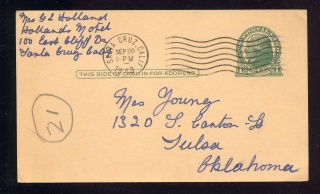 Mrs G L Holland
Hollands Motel
100 East Cliff Dr
Santa Cruz Calif
SANTA CRUZ, CALIF.
SEP 20
1 - PM
THIS SIDE OF CARD IS FOR ADDRESS
21
Mrs Young
1320 S. Canton - St
Tulsa
Oklahoma